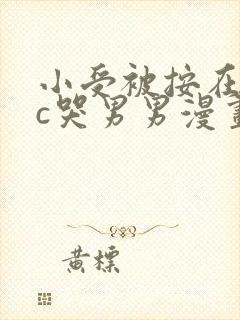 小受被按在
c哭男男漫畫
黄標